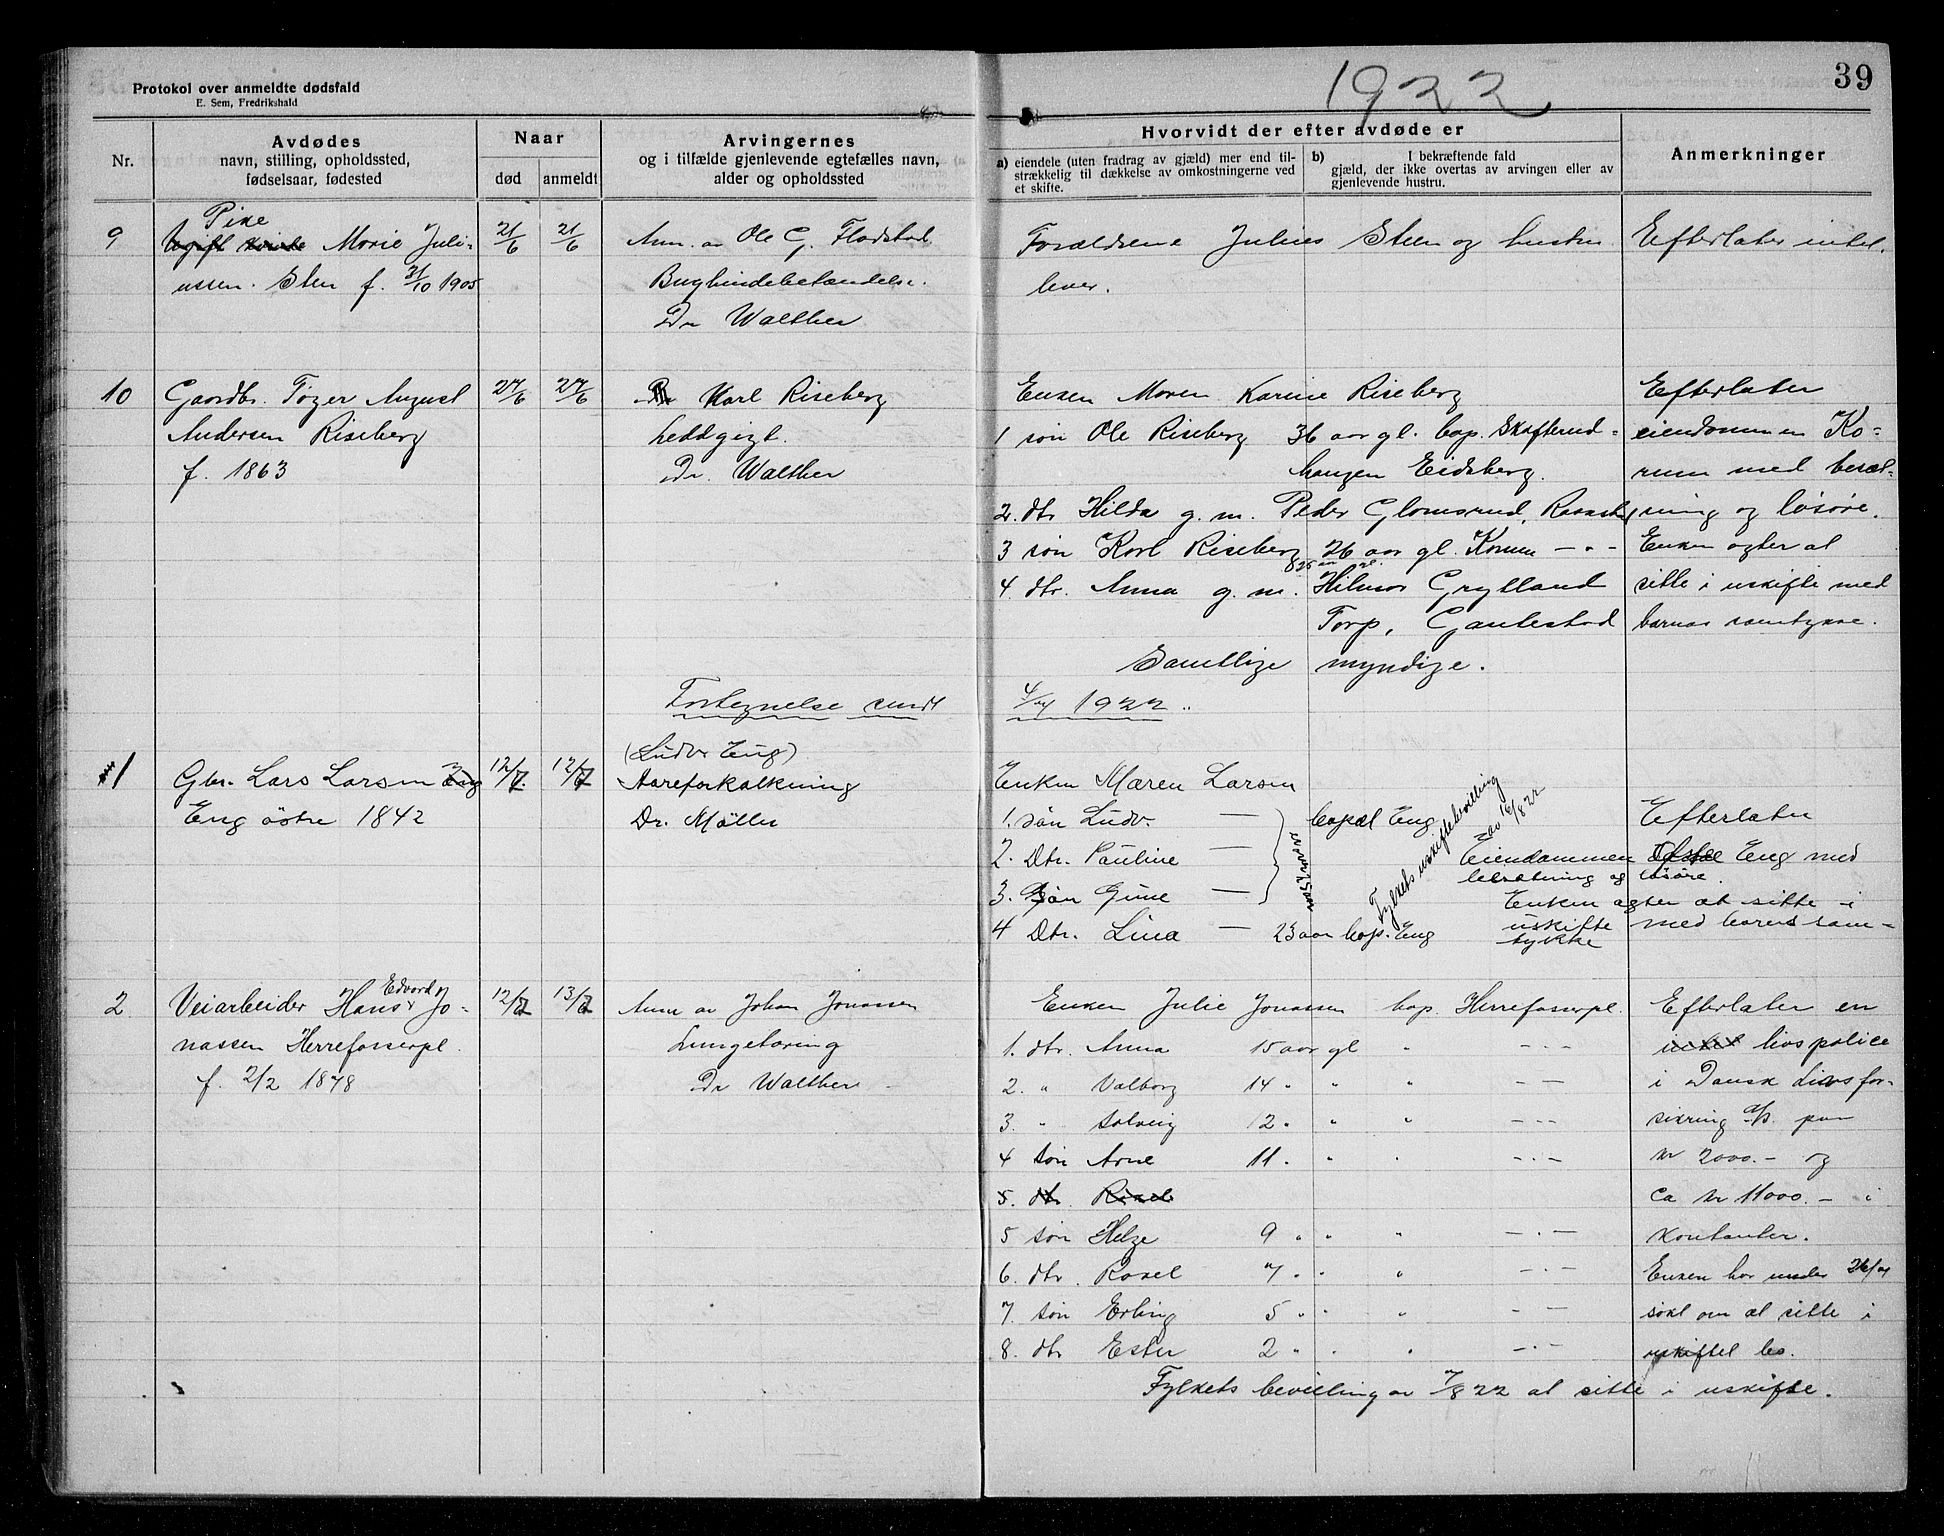 Protokol over anmeldte dødsfald
E. Sem, Fredrikshald
1922
39
Nr.
Avdødes
navn, stilling, opholdssted,
fødselsaar, fødested
Naar
død
anmeldt
Arvingernes
og i tilfælde gjenlevende egtefælles navn,
alder og opholdssted
Hvorvidt der efter avdøde er
a) eiendele (uten fradrag av gjæld) mer end til-
strækkelig til dækkelse av omkostningerne ved
et skifte.
b) I bekræftende fald
gjæld, der ikke overtas av arvingen eller av
gjenlevende hustru.
Anmerkninger
9
Pike
Ugift kvinde Marie Juli-
ussen. Sten f. 31/10 1905
21/6
21/6
Anm. av Ole G. Flodstad.
Bughindebetændelse.
Dr Walther
Forældrene Julius Steen og hustru
lever.
Efterlater intet.
10
Gaardbr. Tøger August
Andersen Riseberg
f. 1863
27/6
27/6
Karl Riseberg
Leddgigt.
Dr. Walther
Enken Maren Karine Riseberg
1 søn Ole Riseberg 36 aar gl. bop. Skofterud-
haugen Eidsberg.
2. dtr Hilda g. m. Peder Glomsrud,
3 søn Karl Riseberg 26 aar gl. Korum — " -
4. dtr. Anna g. m. Hilmar Grytland
Torp,
Samtlige myndige.
Efterlater
eiendommen Ko-
rum med besæt-
ning og løsøre.
Enken agter at
sitte i uskifte med
barnas samtykke.
Fortegnelse sendt
4/7 1922.
1
Gbr. Lars Larsen Eng
Eng østre 1842
12/7.
12/7
(Ludv Eng)
Aareforkalkning
Dr. Møller
Enken Maren Larsen
1. søn Ludv. — bopæl Eng
2. Dtr. Pauline —
3. Søn Gune —
4 Dtr. Lina — 23 aar bop. Eng
Fylkets uskiftebevilling
av 16/8 22
Efterlater
Eiendommen Eng med
besætning og løsøre.
Enken agter at sitte i
uskifte med barens sam-
tykke
2
Veiarbeider Hans Edvard Jo-
nassen Herrefosserpl.
f. 2/2 1878
12/7
13/7
Anm av Johan Jonassen
Lungetæring
Dr Walther
Enken Julie Jonassen bop. Herrefosserpl.
1. dtr. Anna 15 aar gl " - . -
2. " Valborg 14 " " " - . -
3. " Solveig 12 " " " - . -
4 søn Arne 11 " " " - . -
5. dtr. Rakel
5 søn Helge 9 " " " - . -
6. dtr. Rakel 7 " " " - . -
7. søn Erling 5 " " " - . -
8. dtr Ester 2 " " " - . -
Fylkets bevilling av 7/8 22 at sitte i uskifte.
Efterlater en
intet livspolice
i Dansk Livsfor-
sikring a/s paa
kr 2000.- og
ca kr 11000.- i
kontanter.
Enken har under 26/7
søkt om at sitte i
uskiftet bo.